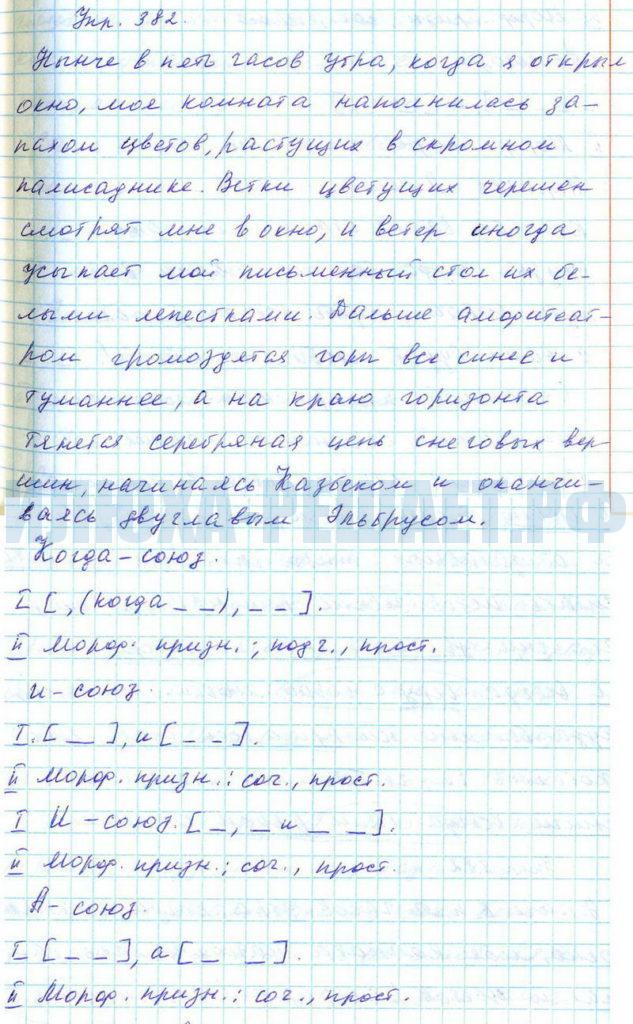 Упр. 382.
Нынче в пять часов утра, когда я открыл
окно, моя комната наполнилась за-
пахом цветов, растущих в скромном
палисаднике. Ветки цветущих черешен
смотрят мне в окно, и ветер иногда
усыпает мой письменный стол их бе-
лыми лепестками. Дальше амфитеат-
ром громоздятся горы все синее и
туманнее, а на краю горизонта
тянется серебряная цепь снеговых вер-
шин, начинаясь Казбеком и оканчи-
ваясь двуглавым Эльбрусом.
Когда - союз.
I [ , (когда _ _ ), _ _ ].
II Морф. призн.; подч., прост.
и - союз.
I. [ __ ], и [ _ _ ].
II Морф. призн.: соч., прост.
I И - союз. [ _, _ и _ _ ].
II Морф. призн.; соч., прост.
А - союз.
I [ _ _ ], а [ _ _ ].
II Морф. призн.: соч., прост.